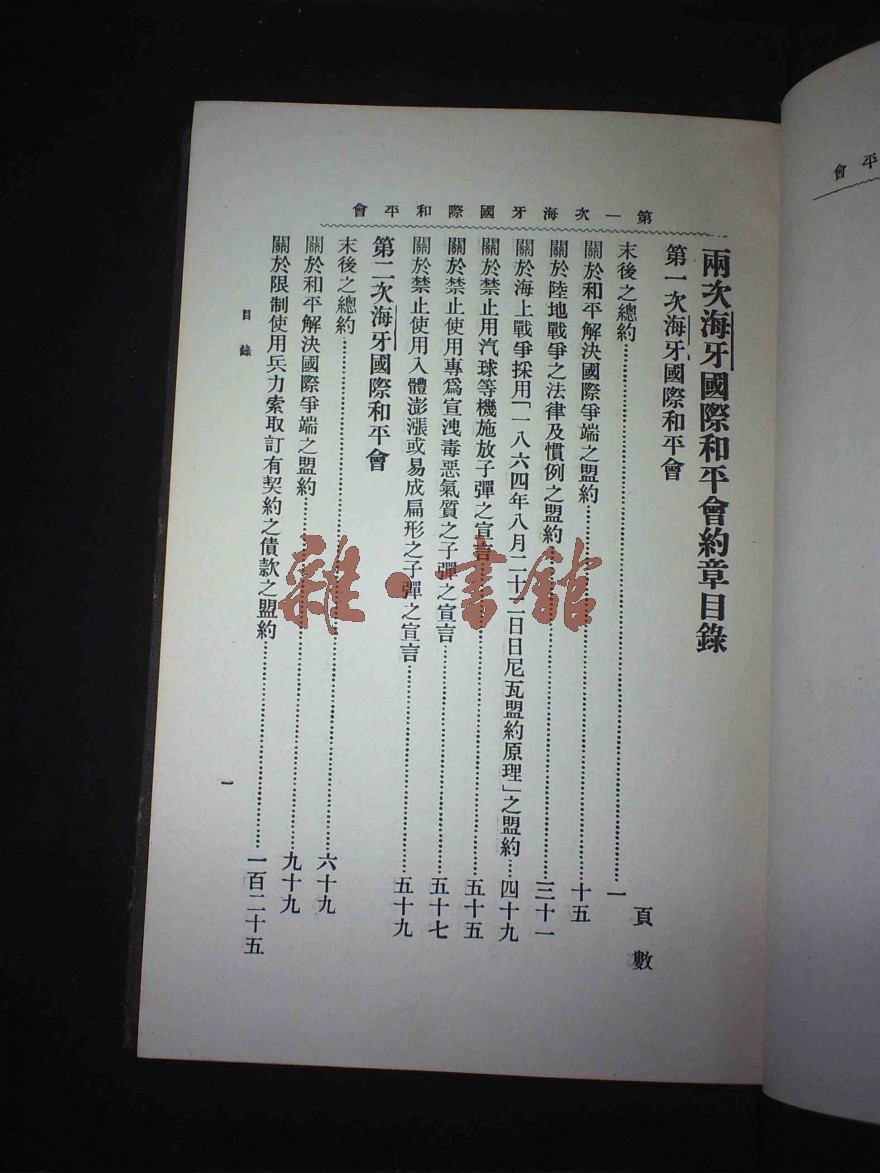 第一次海牙國際和平會
兩次海牙國際和平會約章目錄
頁數
第一次海牙國際和平會
末後之總約……一
關於和平解決國際爭端之盟約……十五
關於陸地戰爭之法律及慣例之盟約……三十一
關於海上戰爭採用「一八六四年八月二十二日日尼瓦盟約原理」之盟約……四十九
關於禁止用汽球等機施放子彈之宣言……五十五
關於禁止使用專爲宣洩毒惡氣質之子彈之宣言……五十七
關於禁止使用入體澎漲或易成扁形之子彈之宣言……五十九
第二次海牙國際和平會
末後之總約……六十九
關於和平解決國際爭端之盟約……九十九
關於限制使用兵力索取訂有契約之債款之盟約……一百二十五
目錄
一
平會
雜·書館